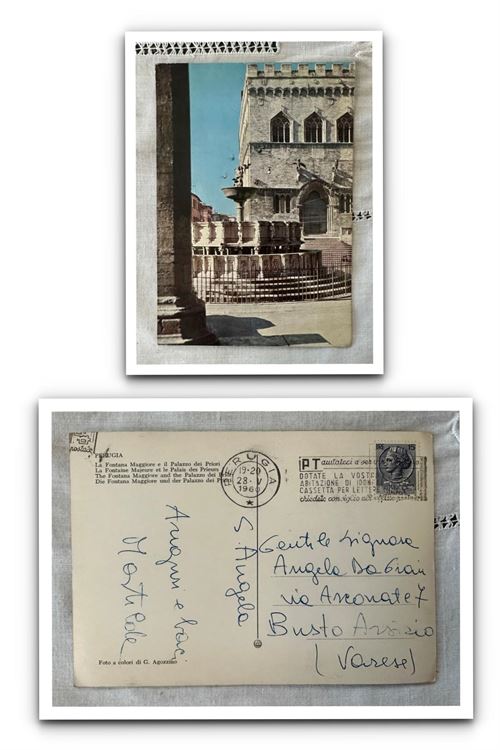 PERUGIA
La Fontana Maggiore e il Palazzo dei Priori
La Fontaine Majeure et le Palais des Prieurs
The Fontana Maggiore and the Palazzo dei
Die Fontana Maggiore und der Palazzo dei
PERUGIA
19-20
28-V
1960
PT aiutateci a
DOTATE LA VOSTRA
ABITAZIONE DI
CASSETTA PER
chiedete consiglio
Auguri e baci
Matilde
S. Angela
Gentile Signora
Angela
via Arconate 7
Busto Arsizio
(Varese)
Foto a colori di G. Agozzino